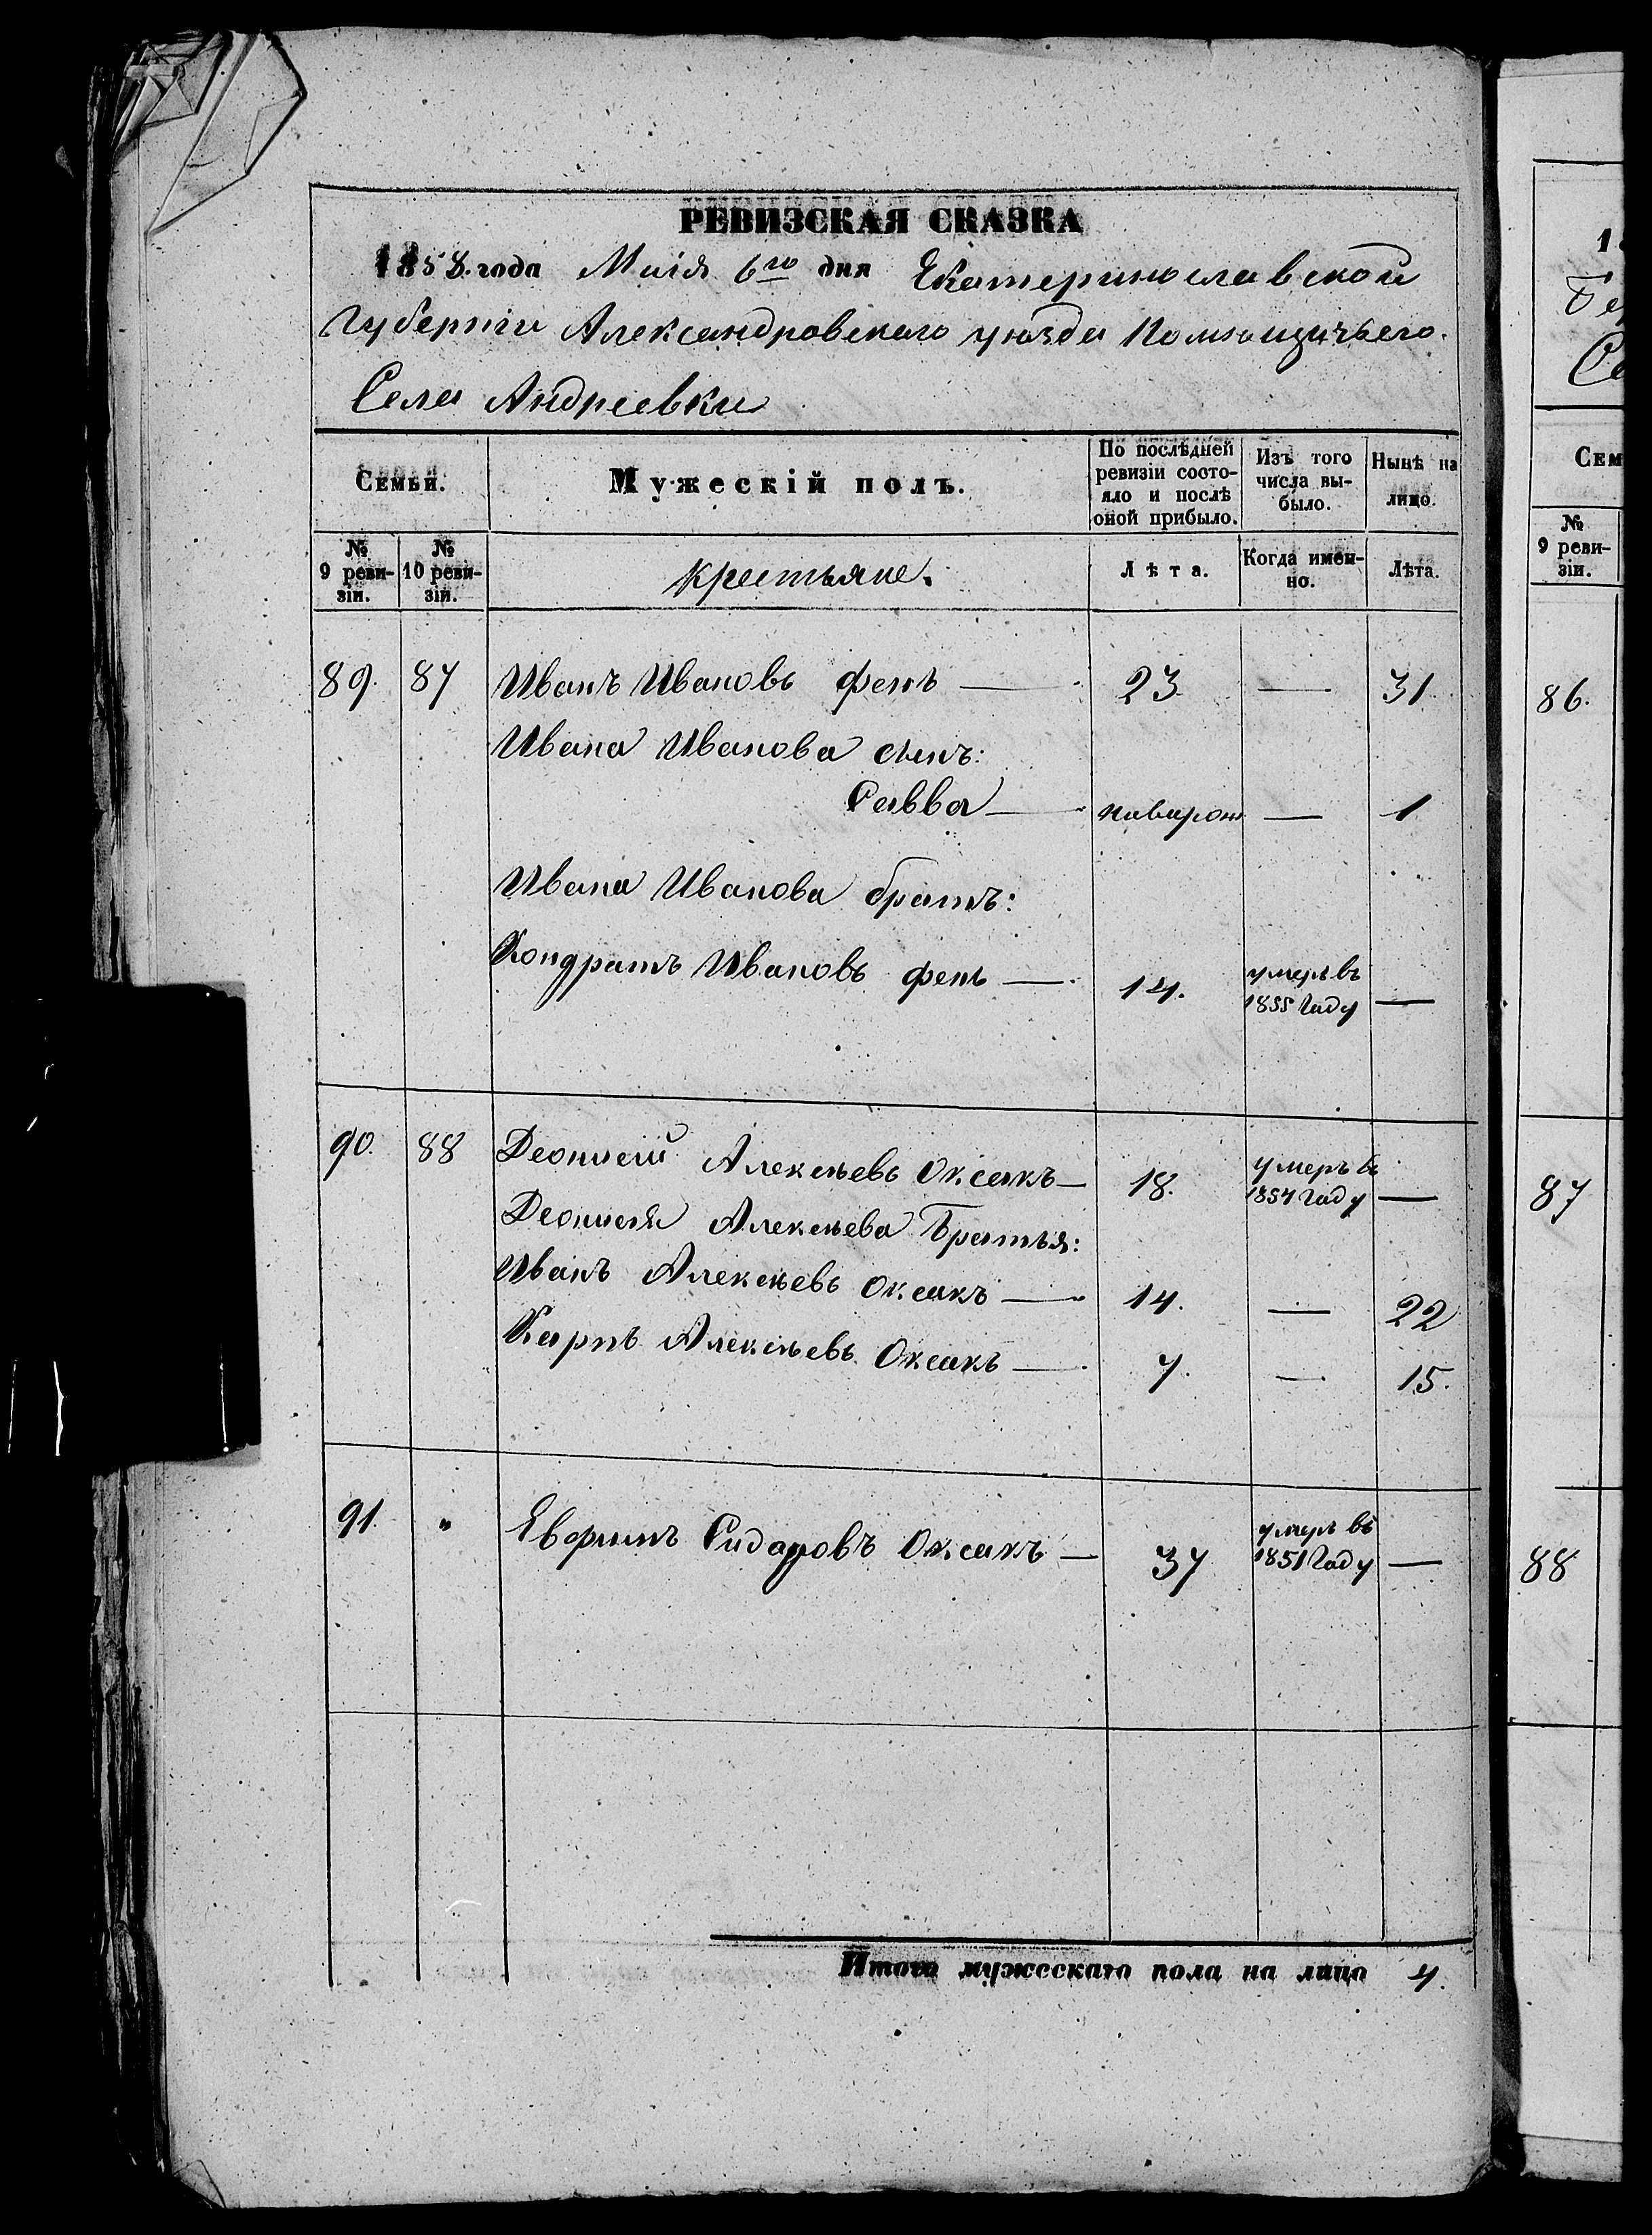 РЕВИЗСКАЯ СКАЗКА
1858. года Маія 6го дня Екатеринославской
Губерніи Александровскаго уѣзда Помѣщичьего
Села Андреевки
Семьи.
Мужескій полъ.
По послѣдней ревизіи состояло и послѣ оной прибыло.
Изъ того числа выбыло.
Нынѣ на лицо.
№ 9 ревизіи.
№ 10 ревизіи.
крестьяне.
Лѣта.
Когда именно.
Лѣта.
89. 87 Иванъ Ивановъ Фень — 23 — 31.
Ивана Иванова сынъ:
Савва — наварож — 1
Ивана Иванова братъ:
Кондратъ Ивановъ фень — 14. умеръ въ 1855 Году —
90. 88 Деонисій Алексѣевъ Оксакъ — 18. умеръ въ 1854 Году —
Деонисія Алексѣева Братья:
Иванъ Алексѣевъ Оксакъ — 14. — 22
Карпъ Алексѣевъ Оксакъ — 7. — 15.
91. " Евфимъ Сидаровъ Оксакъ — 37 умеръ въ 1851 Году —
Итого мужескаго пола на лицо 4.
Сем
№ 9 ревизіи.
86.
87
88